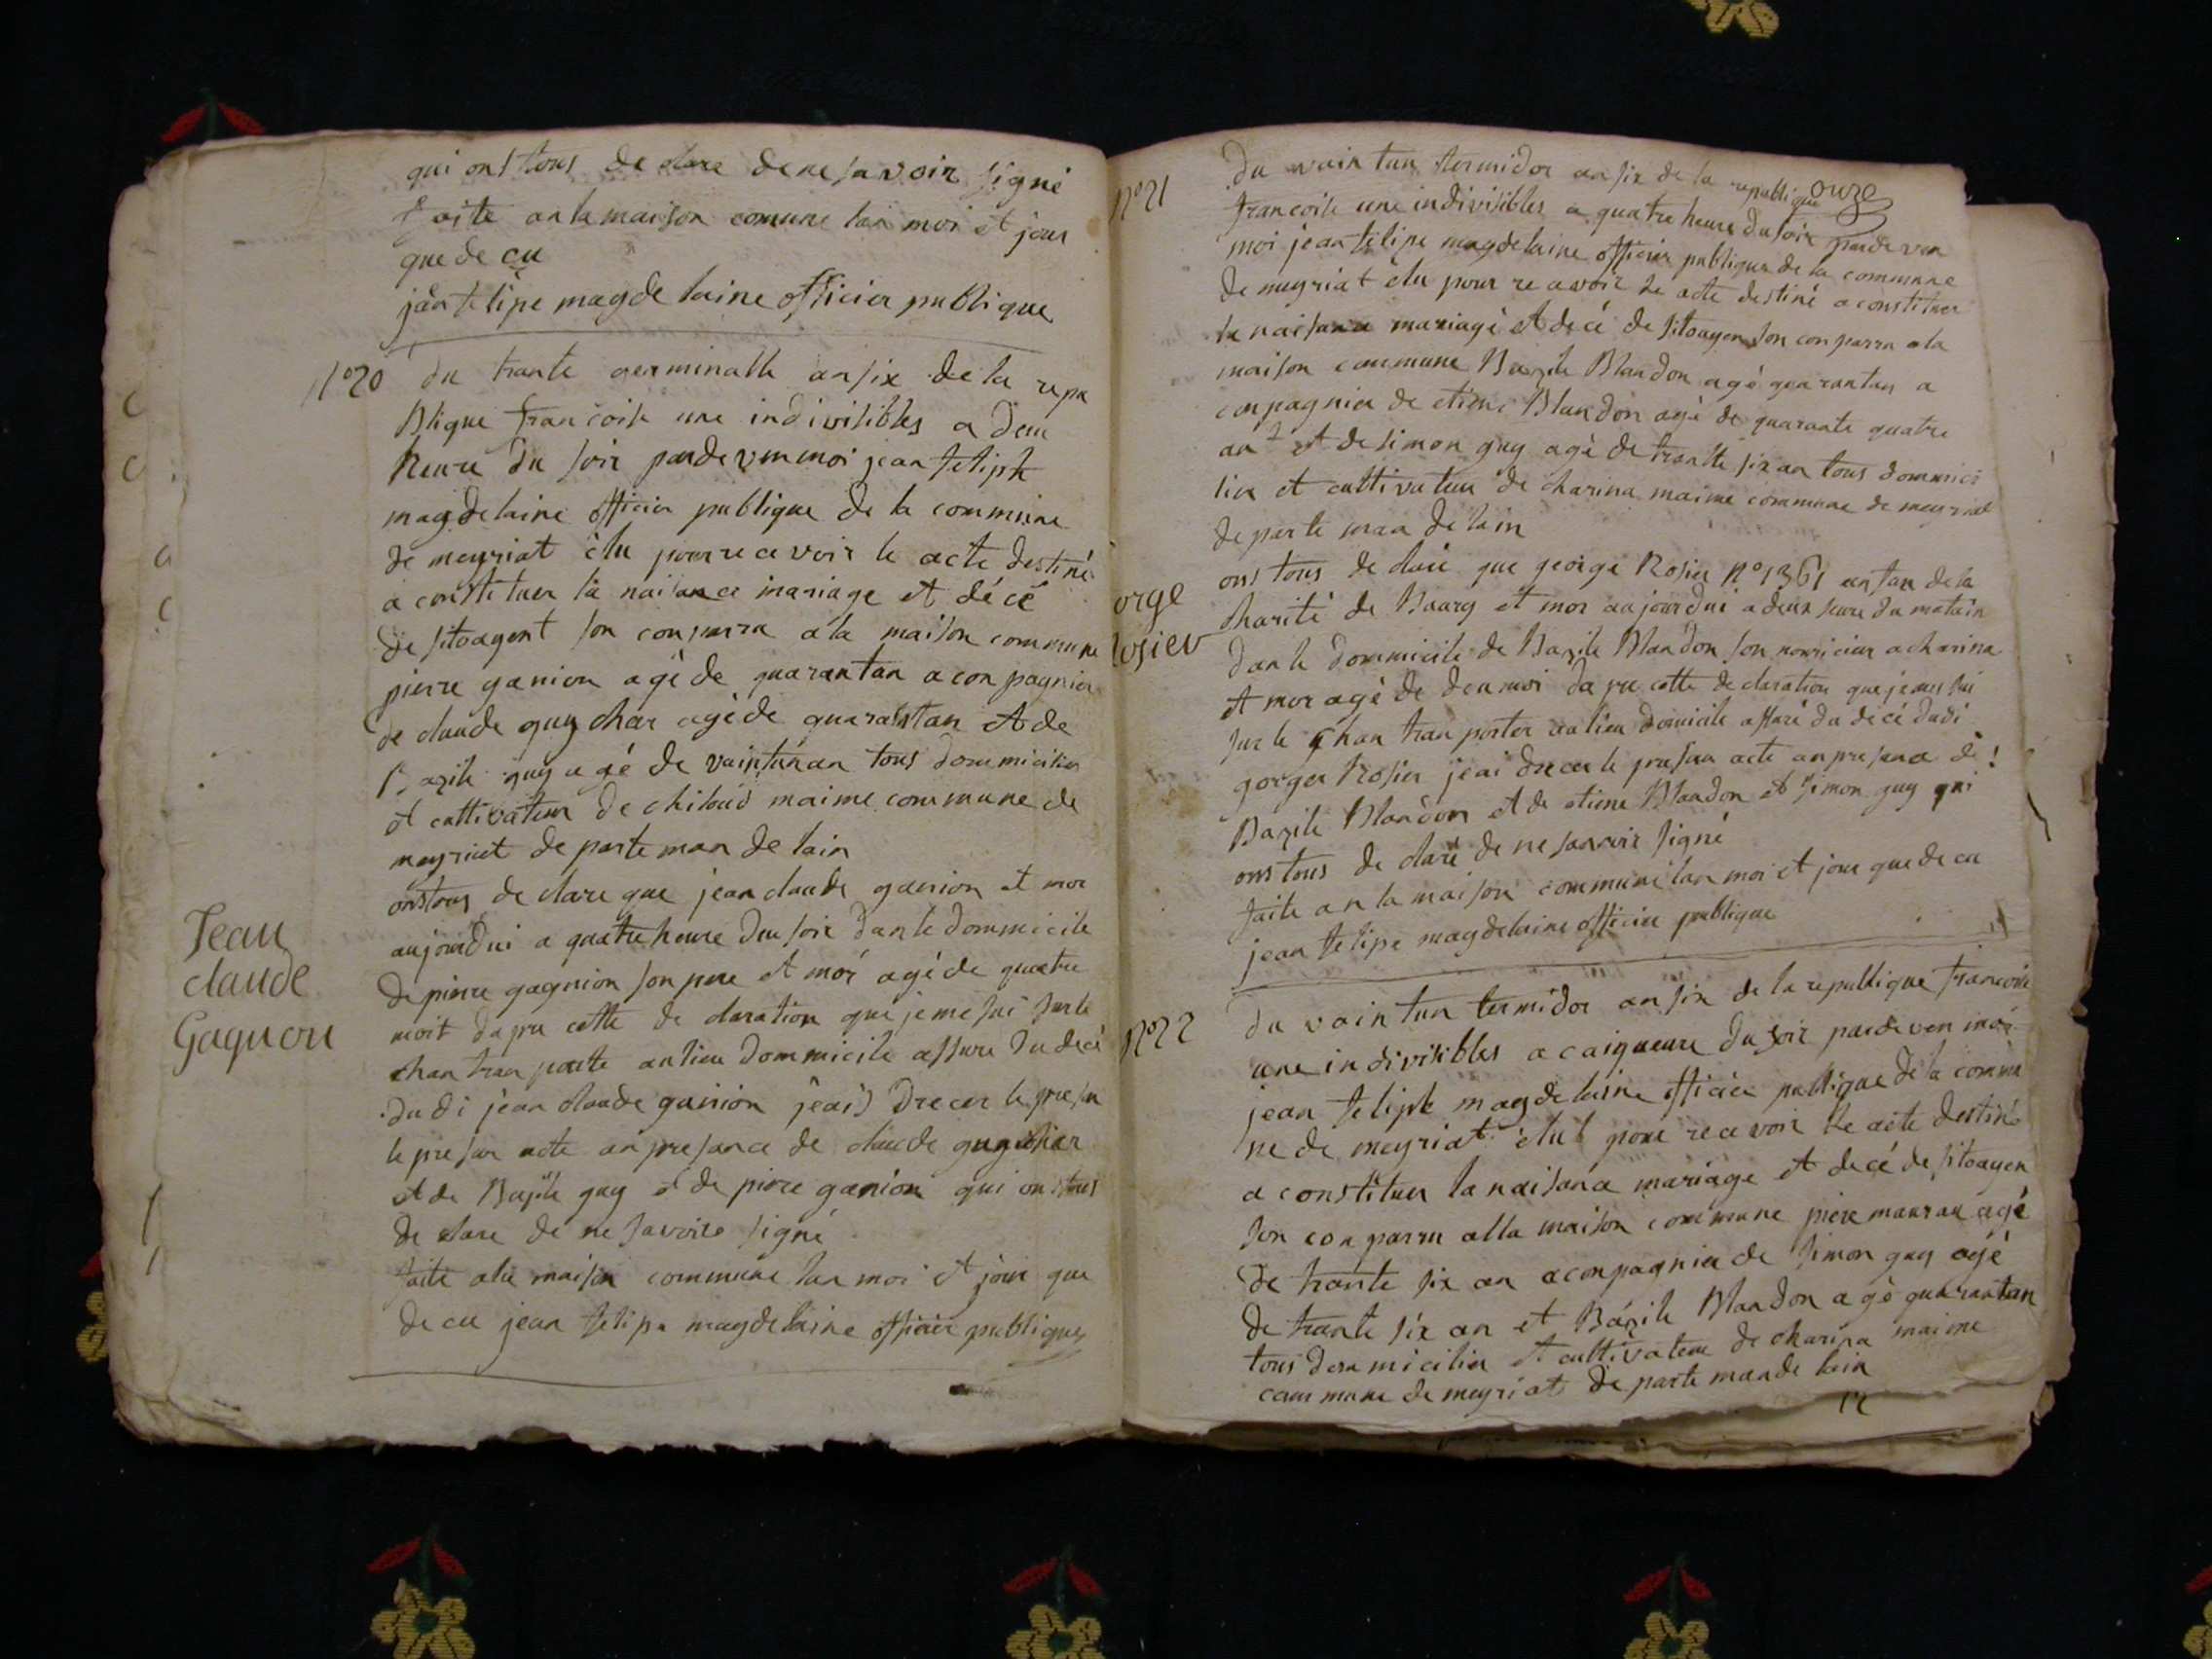 qui onstous de clare de ne savoir signé
faite an la maison comune lan moi et jour
que de cu
jean felipe magdelaine officier publique
n°20
du trante germinalle an six de la repu
blique francoise une indivisibles a deu
heure du soir pardeven moi jean felipe
magdelaine officier publique de la commune
de meyriat élu pour re ce voir le acte destiné
a constituer la naisance mariage et décé
de sitoagent son conparra a la maison commune
pierre ganion agé de quarantan acon pagnier
de claude guy char agé de quarantan et de
Bazile guy agé de vaintunan tous dommicilier
et cultivateur de chiloud maime commune de
meyriat de parte man de lain
onstous de clare que jean claude ganion et mor
aujourdui a quatre heure deu soir dan le dommicile
de pierre gagnion son pere et mor agé de quatre
moit dapre cette de claration que je me sui sur le
chan tran porte au lieu dommicile assure du decé
du di jean claude ganion jeais drecer le presan
le presan acte an presance de claude guy char
et de Basile guy et de piere ganion qui onstous
de clare de ne savoire signé
faite ala maison commune lan moi et jour que
de cu jean felipe magdelaine officier publique
Jean
claude
Gagnon
n°21
du vain tun termidor an six de la republique
onze
francoise une indivisibles a quatre heure du soir pardeven
moi jean felipe magdelaine officier publique de la commune
de meyriat élu pour re avoir le acte destiné a constituer
la naisance mariagé et decé de sitoayen son conparra a la
maison commune Bazile Blandon agé quarantan a
conpagnier de etiene Blandon agé de quarante quatre
an et de simon guy agé de trante six an tous dommici
lier et cultivateur de charina maime commune de meyriat
de parte man de lain
onstous de claré que george Rosier n°1361 anfan de la
charité de Bourg et mor aujourdui a deux heure du matain
dan le dommicile de Bazile Blandon son nouricier a charina
et mor agé de deu moi da pre cette de claration que je me sui
sur le chan tran porter au lieu domicile assuré du décé dudi
gorger Rosier jeai drecer le presan acte an presance de
Bazile Blandon et de etiene Blandon et simon guy qui
onstous de claré de ne savoir signé
faite an la maison commune lan moi et jour que de cu
jean felipe magdelaine officier publique
orge
Rosier
n°22
du vain tun termidor an six de la republique francoise
une indivisibles a cainqueure du soir pardeven moi
jean felipe magdelaine officier publique de la commu
ne de meyriat élut pour re ce voir le acte destiné
a constituer la naisance mariage et decé de sitoayen
son con parru alla maison commune piere mauran agé
de trante six an aconpagnier de simon guy agé
de trante six an et Bazile Blandon agé quarantan
tous dommicilier et cultivateur de charina maime
commune de meyriat de parte mande lain